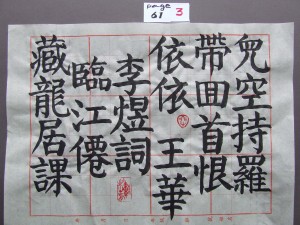 page
61 3
兒空持羅
帶回首恨
依依 王華
李煜詞
臨江僊
藏龍居課